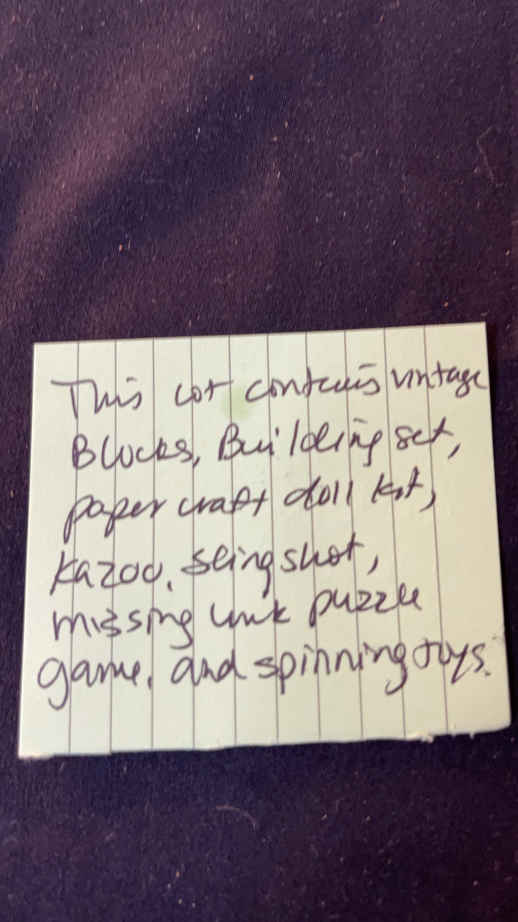 This lot contains vintage
Blocks, Building set,
paper craft doll kit,
kazoo, slingshot,
missing link puzzle
game, and spinning toys.